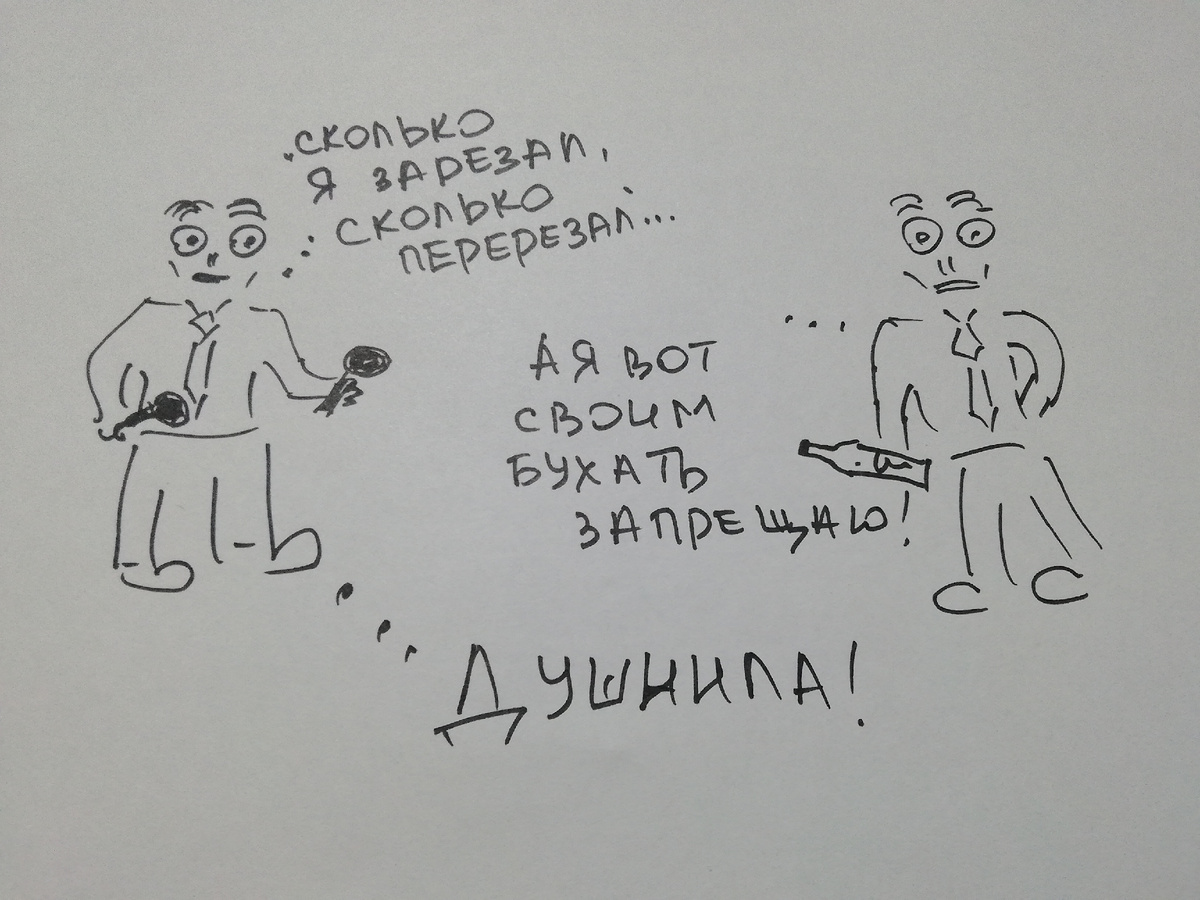 СКОЛЬКО
Я ЗАРЕЗАЛ,
СКОЛЬКО
ПЕРЕРЕЗАЛ...
... А Я ВОТ
СВОИМ
БУХАТЬ
ЗАПРЕЩАЮ!
... ДУШНИЛА!